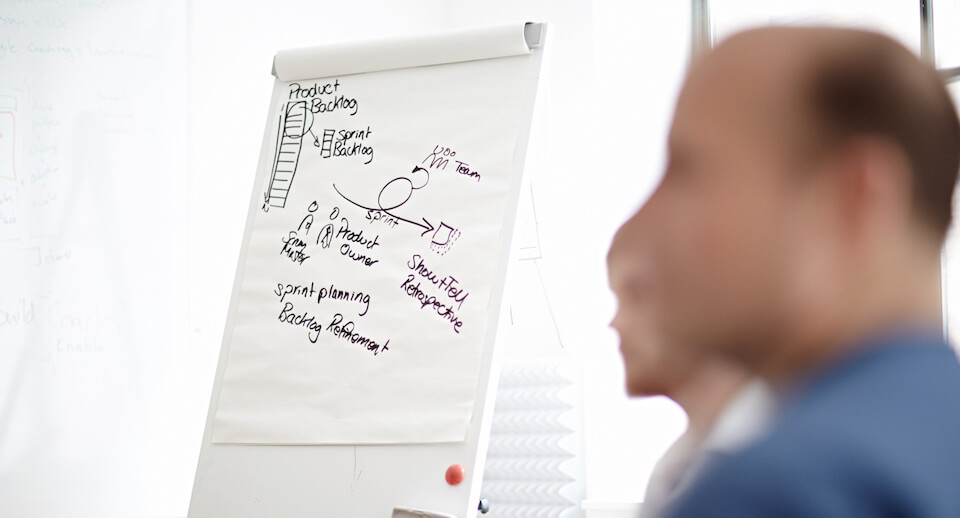 Product
Backlog
Sprint
Backlog
Team
sprint
Product
Owner
Show+Tell
Retrospective
sprint planning
Backlog Refinement